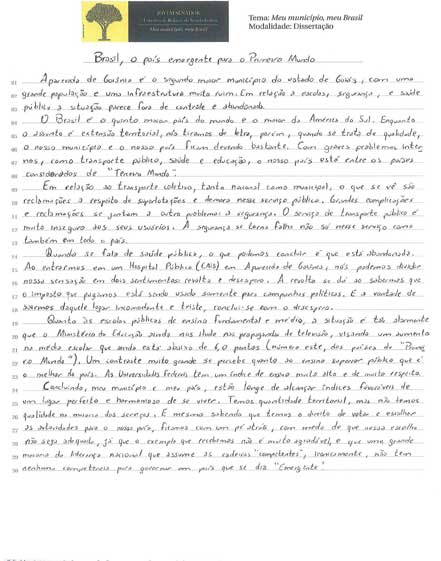 JOVEM SENADOR
Meu município, meu Brasil
Tema: Meu município, meu Brasil
Modalidade: Dissertação
Brasil, o país emergente para o Primeiro Mundo
01 Aparecida de Goiânia é o segundo maior município do estado de Goiás, com uma
02 grande população e uma infraestrutura muito ruim. Em relação a escolas, segurança, e saúde
03 pública a situação parece fora de controle e abandonada.
04 O Brasil é o quinto maior país do mundo e o maior da América do Sul. Enquanto
05 o assunto é extensão territorial, nós tiramos de letra, porém, quando se trata de qualidade,
06 o nosso município e o nosso país ficam devendo bastante. Com graves problemas inter
07 nos, como transporte público, saúde e educação, o nosso país está entre os países
08 considerados de "Terceiro Mundo".
09 Em relação ao transporte coletivo, tanto nacional como municipal, o que se vê são
10 reclamações a respeito de superlotações e demora nesse serviço público. Grandes complicações
11 e reclamações se juntam a outro problema: a segurança. O serviço de transporte público é
12 muito inseguro aos seus usuários. A segurança se torna falha não só nesse serviço como
13 também em todo o país.
14 Quando se fala de saúde pública, o que podemos concluir é que está abandonada.
15 Ao entrarmos em um Hospital Público (CAIS) em Aparecida de Goiânia, nós podemos dividir
16 nossa sensação em dois sentimentos: revolta e desespero. A revolta se dá ao sabermos que
17 o imposto que pagamos está sendo usado somente para campanhas políticas. E a vontade de
18 sairmos daquele lugar incomodente e triste, conclui-se com o desespero.
19 Quanto às escolas públicas de ensino fundamental e médio, a situação é tão alarmante
20 que o Ministério da Educação ainda nos ilude nas propagandas de televisão, visando um aumento
21 na média escolar que ainda está abaixo de 6,0 pontos (número este, dos países do "Primei
22 ro Mundo"). Um contraste muito grande se percebe quanto ao ensino superior público que é
23 o melhor do país. As Universidades Federais tem um índice de ensino muito alto e de muito respeito.
24 Concluindo, meu município e meu país, estão longe de alcançar índices favoráveis de
25 um lugar perfeito e harmonioso de se viver. Temos quantidade territorial, mas não temos
26 qualidade na maioria dos serviços. E mesmo sabendo que temos o direito de votar e escolher
27 as autoridades para o nosso país, ficamos com um pé atrás, com medo de que nossa escolha
28 não seja adequada, já que o exemplo que recebemos não é muito agradável, e que uma grande
29 maioria da liderança nacional que assume as cadeiras "competentes", ironicamente, não tem
30 nenhuma competência para governar um país que se diz "Emergente".